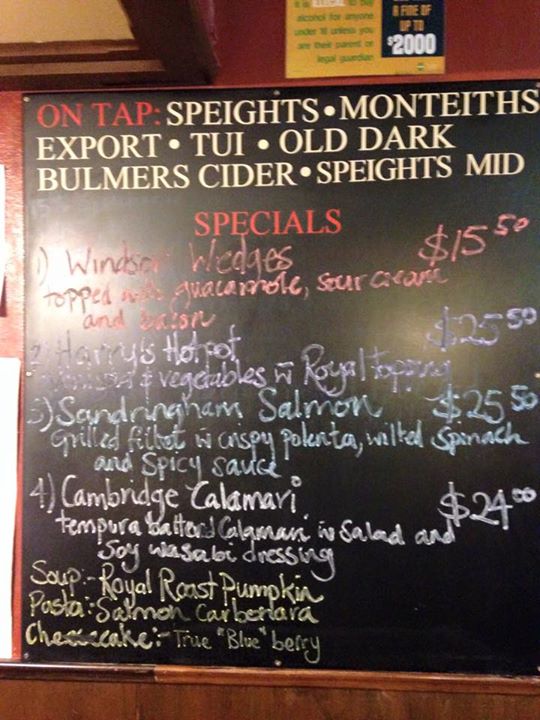 to buy
alcohol for anyone
under 18 unless you
are their parent or
legal guardian
A FINE OF
UP TO
$2000
ON TAP: SPEIGHTS • MONTEITHS
EXPORT • TUI • OLD DARK
BULMERS CIDER • SPEIGHTS MID
SPECIALS
1) Windsor Wedges $15 50
topped with guacamole, sour cream
and bacon
2) Harry's Hotpot $25 50
& vegetables w Royal topping
3) Sandringham Salmon $25 50
Grilled fillet w crispy polenta, wilted Spinach
and Spicy sauce
4) Cambridge Calamari $24 00
tempura batterd Calamari w Salad and
Soy wasabi dressing
Soup:- Royal Roast Pumpkin
Pasta:- Salmon Carbenara
Cheesecake:- True "Blue" berry